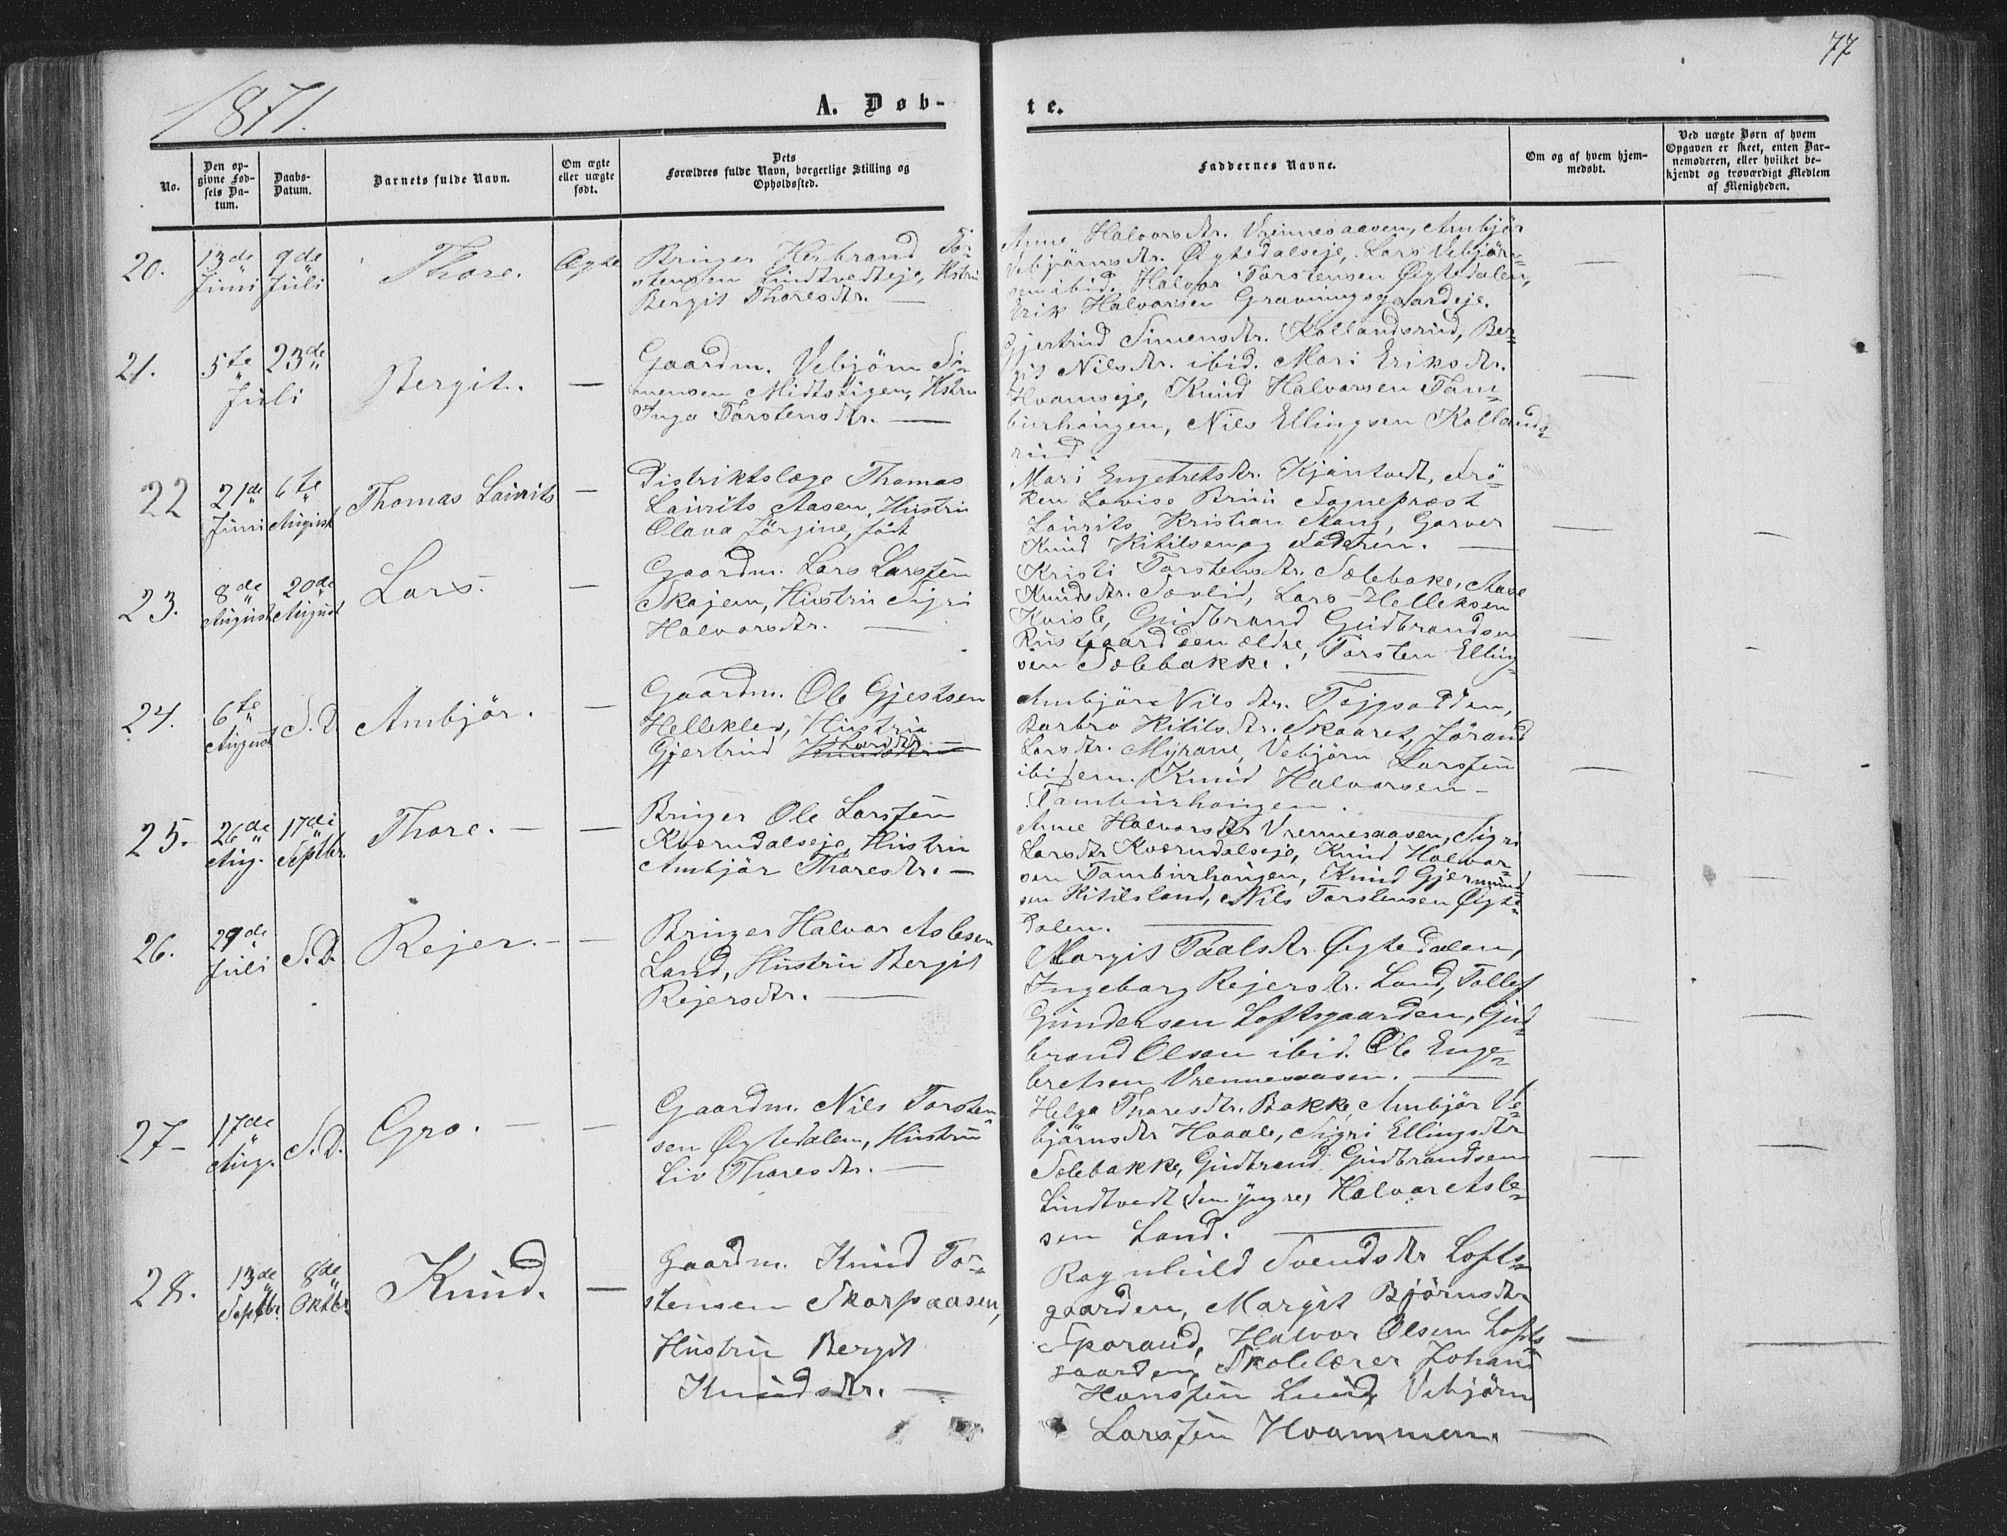 77
1871.
A. Døb-
te.
No.
Den op-
givne Fød-
sels Da-
tum.
Daabs-
Datum.
Barnets fulde Navn.
Om ægte
eller uægte
født.
Dets
Forældres fulde Navn, borgerlige Stilling og
Opholdssted.
Faddernes Navne.
Om og af hvem hjem-
medøbt.
Ved uægte Børn af hvem
Opgaven er skeet, enten Bar-
nemoderen, eller hvilket be-
kjendt og troværdigt Medlem
af Menigheden.
20.
13de
Juni
9de
Juli
Thore.
Ægte
Bruger Herbrand Tor-
stensen Lindtvedteje, Hstru
Bergit Thoresdtr. —
Anne Halvorsdtr. Vrennesaasen, Ambjör
Vebjörnsdtr. Øgtedalseje, Lars Vebjörn-
sen ibid. Halvor Torstensen Øgtedalen,
Erik Halvorsen Gravningsgaardeje.
21.
5te
Juli
23de
Bergit. —
Gaardm. Vebjörn Si-
mensen Midtstigen, Hstru
Inga Torstensdtr. —
Gjertrud Simensdtr. Kollandsrud, Ber-
git Nilsdtr. ibid. Mari Eriksdtr.
Hvamseje, Knud Halvorsen Tam-
burhaugen, Nils Ellingsen Kollands-
rud
22
21de
Juni
6te
August
Thomas Laurits —
Distriktslæge Thomas
Laurits Aasen, Hustru
Olava Jörgine, født
Mari Engebretsdtr. Kjøntvedt, Frö-
ken Lovise Bruu Sognepræst
Laurits Kristian Stang, Garver
Knud Kitilsen og Faderen. —
23.
8de
August
20de
August
Lars. —
Gaardm. Lars Larssen
Skajem, Hustru Sigri
Halvorsdtr. —
Kristi Torstensdtr. Sølebake, Aase
Knudsdtr. Sørlid, Lars Helleksen
Kvisle, Gudbrand Gudbrandsen
Rustgaard den ældre, Torsten Elling-
sen Sølebakke.
24.
6te
August
S.D.
Ambjör. —
Gaardm. Ole Gjestsen
Helleklev, Hustru
Gjertrud Knudsdtr. —
Ambjör Nilsdtr. Tojgsodden,
Barbro Kitilsdtr. Skaaret, Jörand
Larsdtr. Myrane, Vebjörn Larssen
ibidem. Knud Halvorsen —
Tamburhaugen.
25.
26de
Aug.
17de
Septbr.
Thore. — —
Bruger Ole Larssen
Kværndalseje, Hustru
Ambjör Thoresdtr. —
Anne Halvorsdtr Vrennesaasen, Sigri
Larsdtr Kværndalseje, Knud Halvor-
sen Tamburhaugen, Knud Gjermund-
sen Kitilsland, Nils Torstensen Øgte-
dalen.
26.
29de
Juli
S.D.
Rejer. — —
Bruger Halvor Aslesen
Land, Hustru Bergit
Rejersdtr. —
Margit Paalsdtr. Øgtedalen,
Ingeborg Rejersdtr. Land, Tollef
Gundersen Loftsgaarden, Gud-
brand Olsen ibid. Ole Enge-
bretsen Vrennesaasen. —
27 —
17de
Aug.
S.D.
Gro. — —
Gaardm. Nils Torsten-
sen Øgtedalen, Hustru
Liv Thoresdtr. —
Helga Thoresdtr. Bakke, Ambjör Ve-
björnsdtr Haaale, Sigri Ellingsdtr
Sölebakke, Gudbrand Gudbrandsen
Lindtvedt den yngre, Halvor Asle-
sen Land.
28.
13de
Septbr.
8de
Oktbr
Knud. —
Gaardm. Knud Tor-
stensen Skorpaasen,
Hustru Bergit
Knudsdtr. —
Ragnhild Svendsdtr Lofts-
gaarden, Margit Björnsdtr
Sporand, Halvor Olsen Lofts-
gaarden, Skolelærer Johan
Hanssen Lund, Vebjörn
Larssen Hvammen.